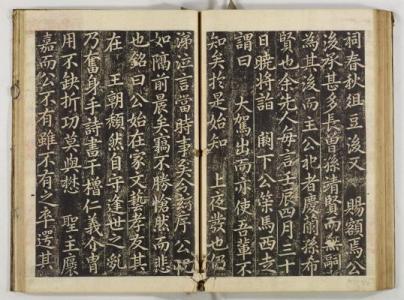 祠春秋俎豆後又　賜額焉公
後承甚多長曾孫靖賢而無嗣
為其後而主公祀者慶爾孫希
賢也余先人每言壬辰四月三十
日曉將詣　闕下公策馬西走
謂曰　大駕出而亦使吾輩不
知矣於是始知　上夜發也仍
涕泣言當時事矣今序公
如隔前晨矣竊不勝愴然而悲
也銘曰公始在家文藝孝友其
在　王朝頹然自守逢世之亂
乃奮身手詩書干櫓仁義介冑
用不缺折功莫與懋　聖主
嘉而公不有雖不有之卒遻其